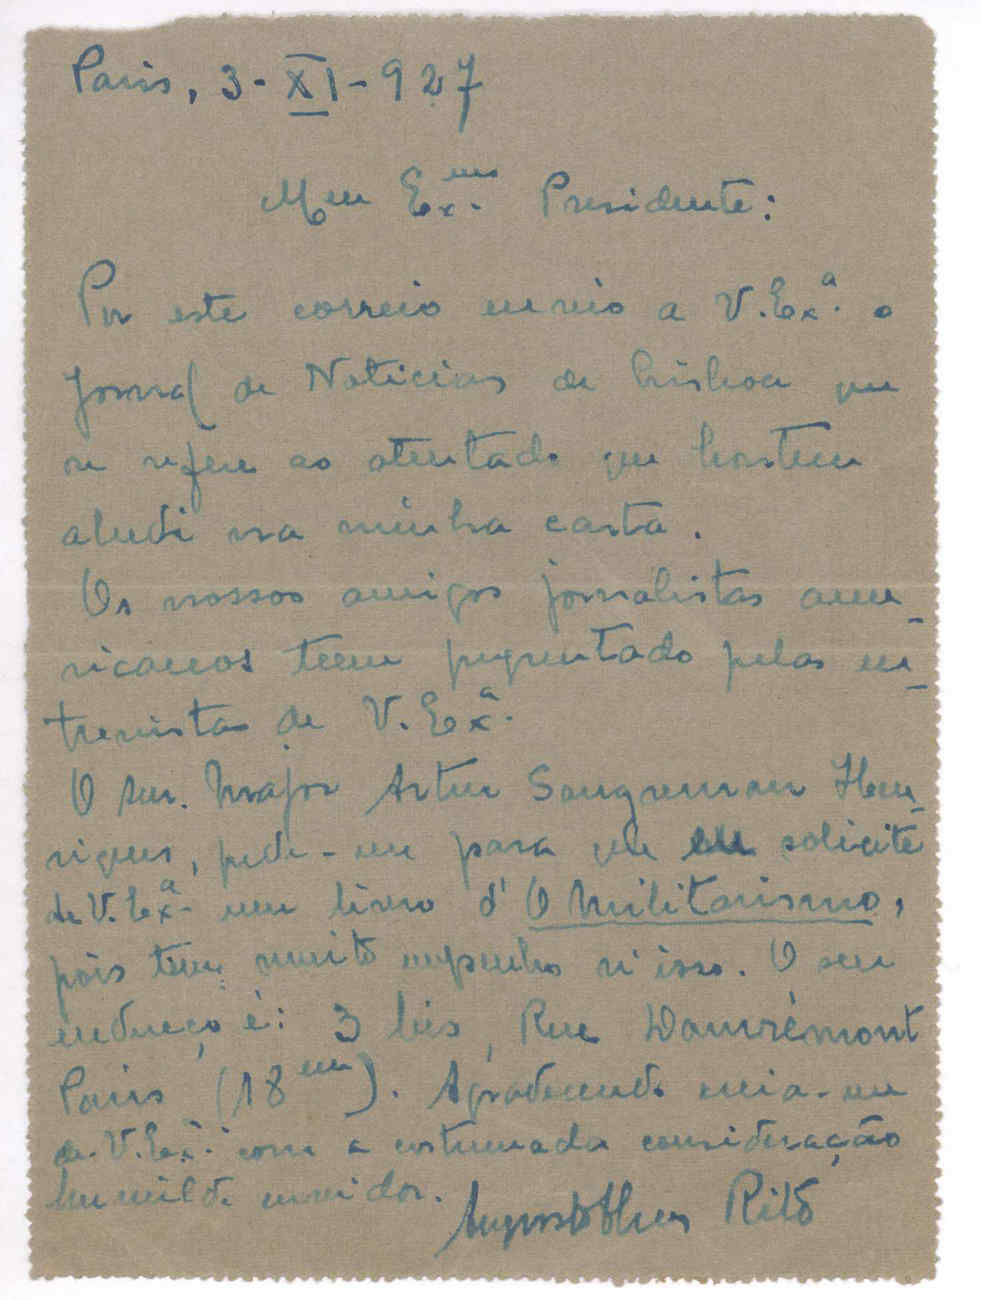 Paris, 3-XI-927
Meu Ex.mo Presidente:
Por este correio envio a V.Ex.a o
Jornal de Noticias de Lisboa que
se refere ao atentado que hontem
aludi na minha carta.
Os nossos amigos jornalistas ame-
ricanos teem preguntado pelas en-
trevistas de V.Ex.a
O snr. Major Artur Sangreman Hen-
riques, pede-me para que eu solicite
de V.Ex.a um livro d'O Militarismo,
pois tem muito empenho n'isso. O seu
endereço é: 3 bis, Rue Damrémont
Paris (18em). Agradecendo creia-me
de V.Ex.a com a costumada consideração
humilde servidor.
Rito